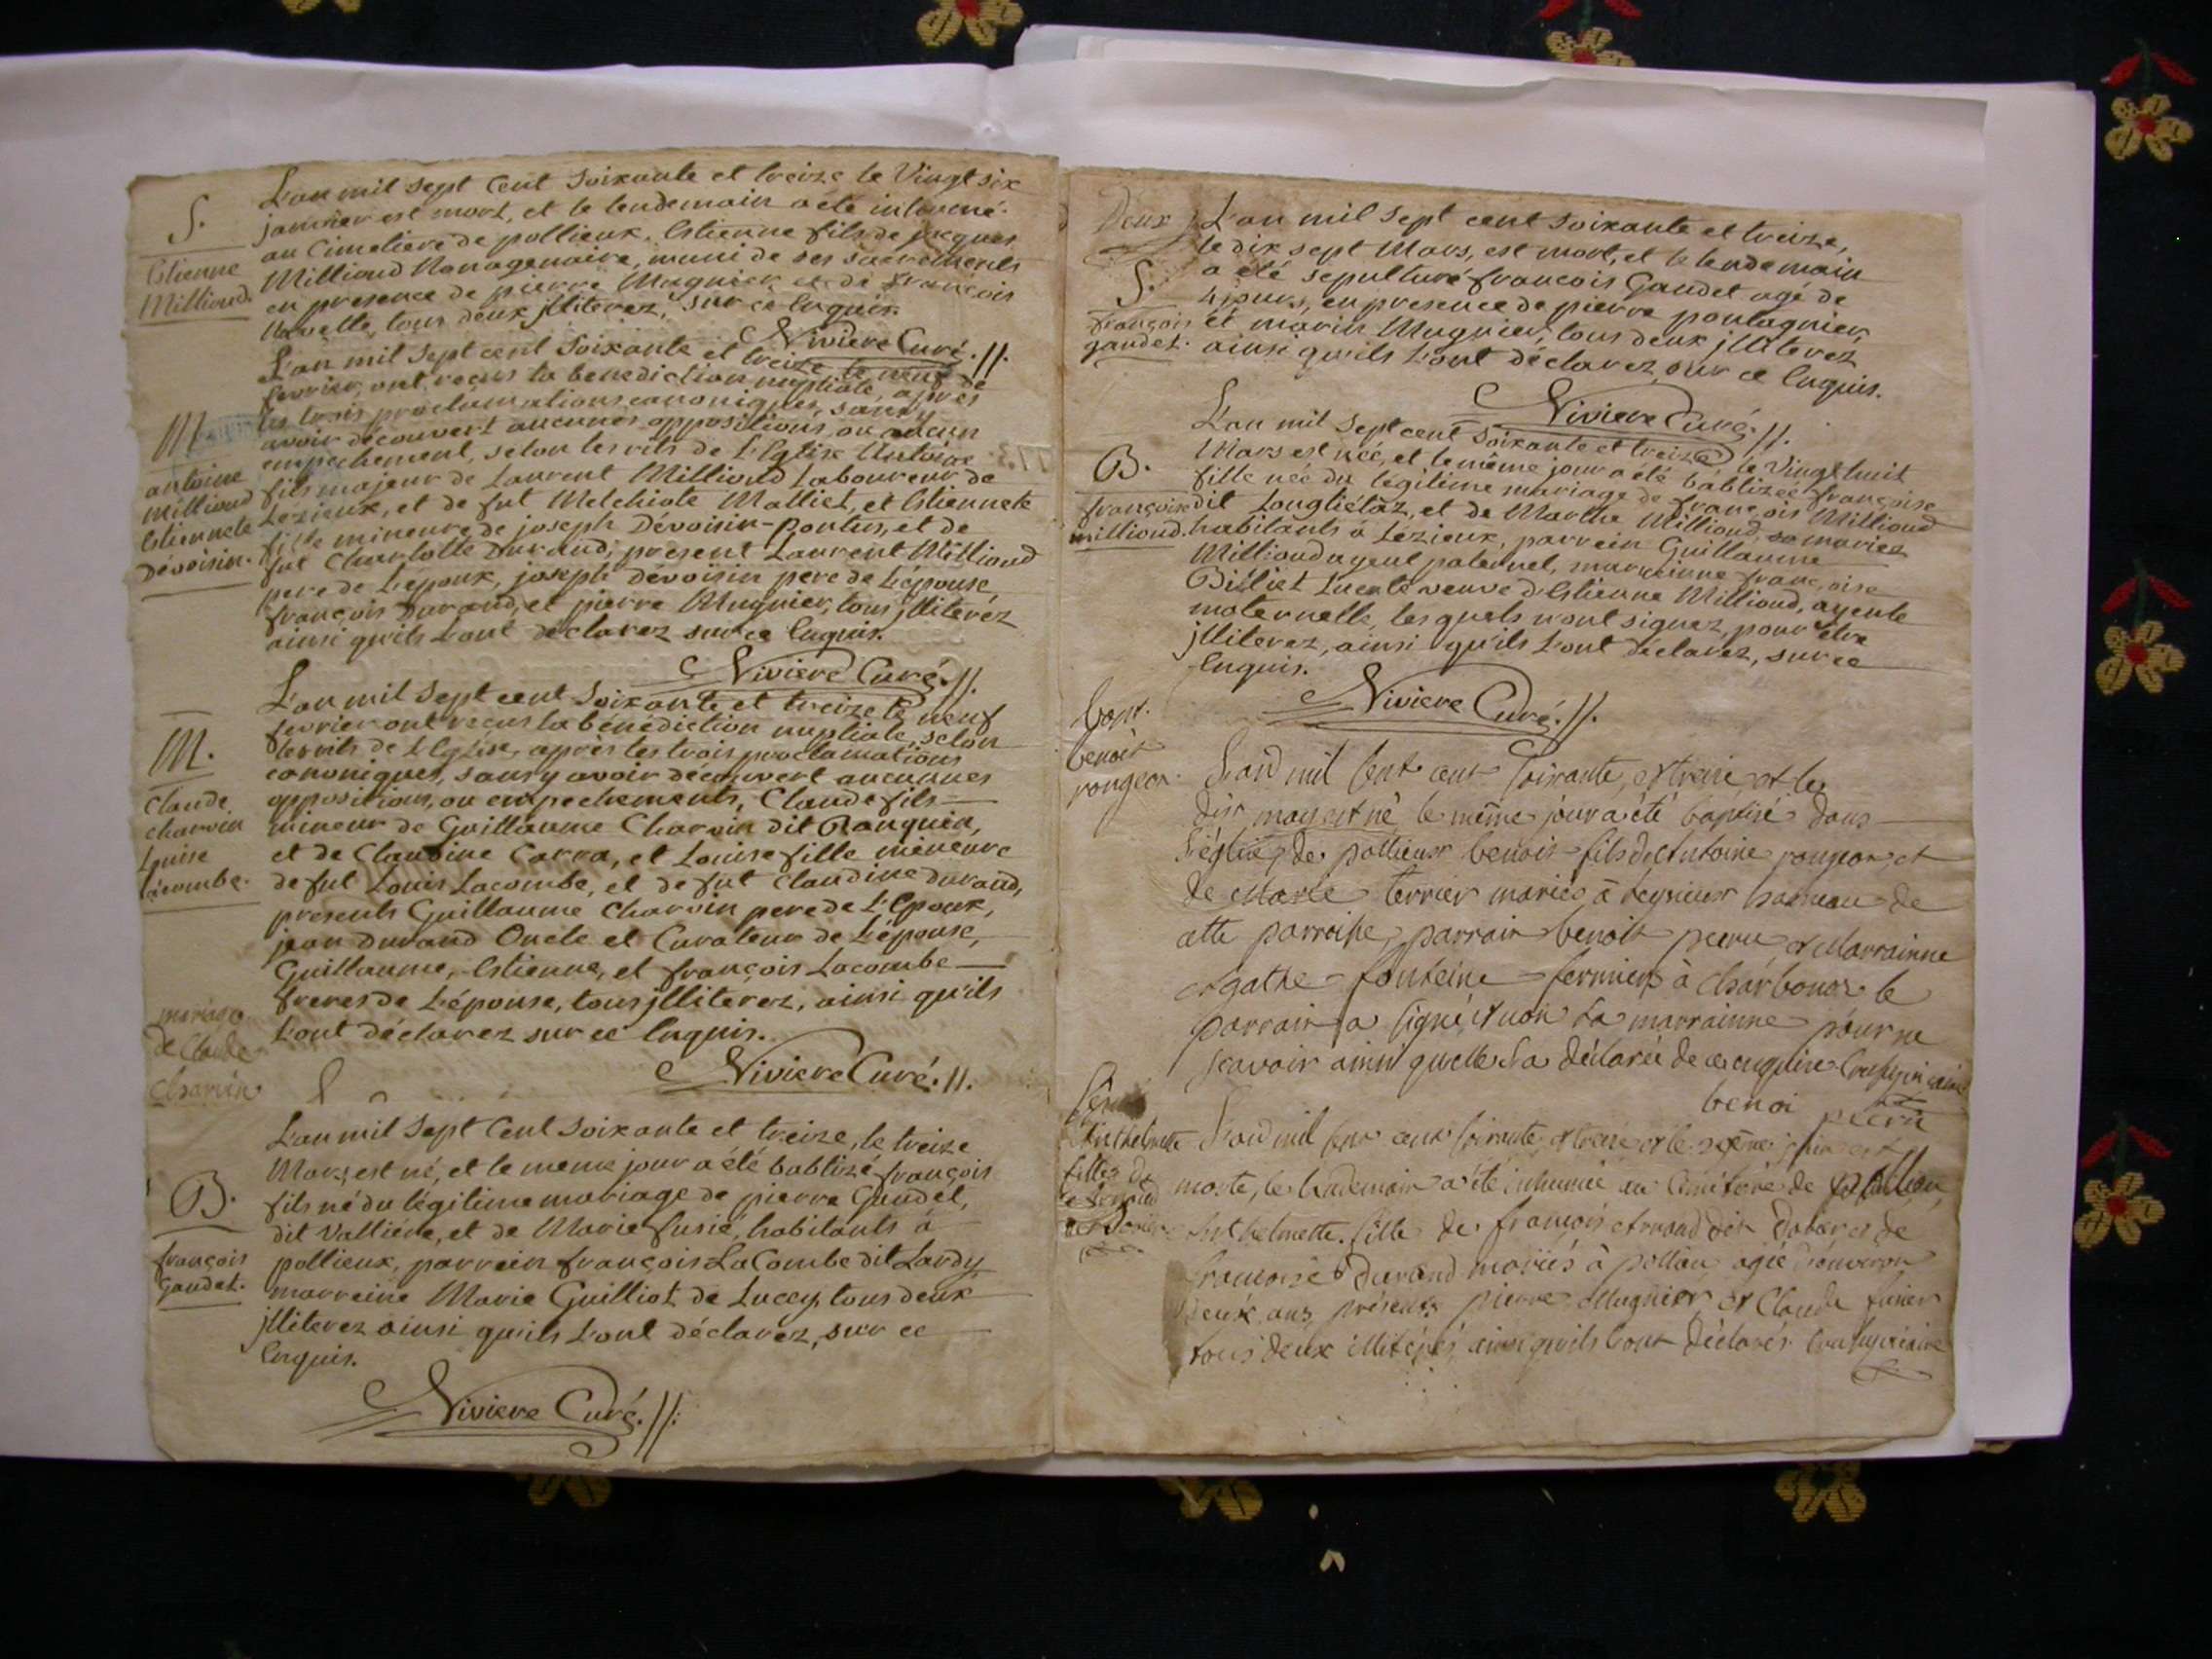 S.
Estienne
Millioud.
L'an mil sept Cent soixante et treize le Vingt six
janvier est mort, et le lendemain a été interré
au Cimetiere de pollieux, Estienne fils de jacques
Millioud Nonagenaire, muni de ses sacrements
en presence de pierre Mugnier et de françois
tous deux jlliterez, sur ce Enquis.
Niviere Curé.//.
M.
antoine
Millioud
Estiennete
Dévoisin.
L'an mil sept cent soixante et treize le neuf de
fevrier, ont reçus la benediction nuptiale, apres
les trois proclamations canoniques, sans y
avoir découvert aucunes oppositions, ou aucun
empechement, selon les rits de L'Eglise Antoine
fils majeur de Laurent Millioud Laboureur de
Lezieux, et de fut Melchiote Malliet, et Estiennete
fille mineure de joseph Dévoisin-pontus, et de
fut Charlotte Durand, present Laurent Millioud
pere de L'epoux, joseph Dévoisin pere de L'épouse,
françois Durand, et pierre Mugnier, tous jlliterez
ainsi qu'ils L'ont déclarez sur ce Enquis.
Niviere Curé.//.
M.
Claude
charvin
Louise
Lacombe.
L'an mil sept cent soixante et treize le neuf
fevrier ont reçus la bénédiction nuptiale, selon
les rits de L'Eglise, après les trois proclamations
canoniques, sans y avoir découvert aucunnes
oppositions, ou empechements, Claude fils
mineur de Guillaume Charvin dit Ranquin,
et de Claudine Carra, et Louise fille mineure
de fut Louis Lacombe, et de fut Claudine durand,
presents Guillaume Charvin pere de L'Epoux,
jean Durand Oncle et Curateur de L'épouse,
Guillaume, Estienne, et françois Lacombe
freres de L'épouse, tous jlliterez, ainsi qu'ils
L'ont déclarez sur ce Enquis.
Niviere Curé.//.
mariage
de Claude
Charvin
B.
françois
Gaudet.
L'an mil sept Cent soixante et treize, le treize
Mars, est né, et le meme jour a été babtizé françois
fils né du légitime mariage de pierre Gaudet,
dit Valliére, et de Marie fusié, habitants à
pollieux, parrein françois LaCombe dit Lardy,
marreine Marie Guilliot de Lucey, tous deux
jlliterez ainsi qu'ils L'ont déclarez, sur ce
Enquis.
Niviere Curé.//.
Deux
S.
françois
gaudet.
L'an mil sept cent soixante et treize,
le dix sept Mars, est mort, et le lendemain
a été sepulturé françois Gaudet agé de
4 jours, en presence de pierre pontagnier,
et marin Mugnier, tous deux jlliterez
ainsi qu'ils L'ont déclarez sur ce Enquis.
Niviere Curé.//.
B.
françoise
millioud.
L'an mil sept cent soixante et treize, le Vingt huit
Mars est née, et le même jour a été babtizée françoise
fille née du légitime mariage de françois Millioud
dit Longliétaz, et de Marthe Millioud, mariez
habitants à Lézieux, parrein Guillaume
Millioud ayeul paternel, marreinne françoise
Billiet veuve d'Estienne Millioud, ayeule
maternelle, lesquels n'ont signez, pour être
jlliterez, ainsi qu'ils L'ont déclarez, sur ce
Enquis.
Niviere Curé.//.
bapt.
benoit
rongeon.
L'and mil sept cent soixante et treize et le
dix may est né le même jour a été baptisé dans
L'église de pollieux benoit fils d'Antoine rongeon et
de Marie terrier mariés à leyrieux hameau de
cette parroisse, parrain benoit perru et Marrainne
agathe fonteine fermiers à Charbonoz le
parrain a signé et non La marrainne pour ne
scavoir ainsi quelle la déclarée de ce enquise
benoi perru
Anthelmette
fille de
L'and mil sept cent soixante et treize et le juin est
morte, le landemain a été inhumée au Cimitère de pollieu,
Anthelmette fille de françois Armand dit et de
francoise Durand mariés à pollieu agée d'environ
deux ans, présents pierre Mugnier et Claude fusier
tous deux illitérés ainsi qu'ils l'ont déclarés